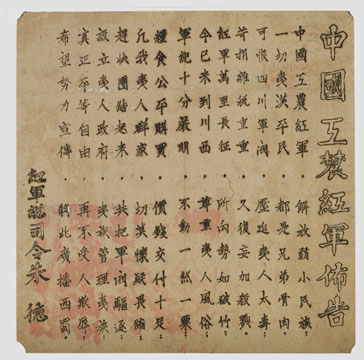 中國工農紅軍佈告
中國工農紅軍．解放弱小民族．
一切夷漢平民．都是兄弟骨肉．
可恨四川軍閥．壓迫夷人太毒．
苛捐雜稅重重．又復妄加殺戮．
紅軍萬里長征．所向勢如破竹．
今已來到川西．尊重夷人風俗．
軍紀十分嚴明．不動一絲一粟．
糧食公平購買．價錢交付十足．
凡我夷人群眾．切莫懷疑畏縮．
趕快團結起來．共把軍閥驅逐．
設立夷人政府．夷族管理夷族．
真正平等自由．再不受人欺辱．
希望努力宣傳．將此廣播西蜀．
紅軍總司令朱德